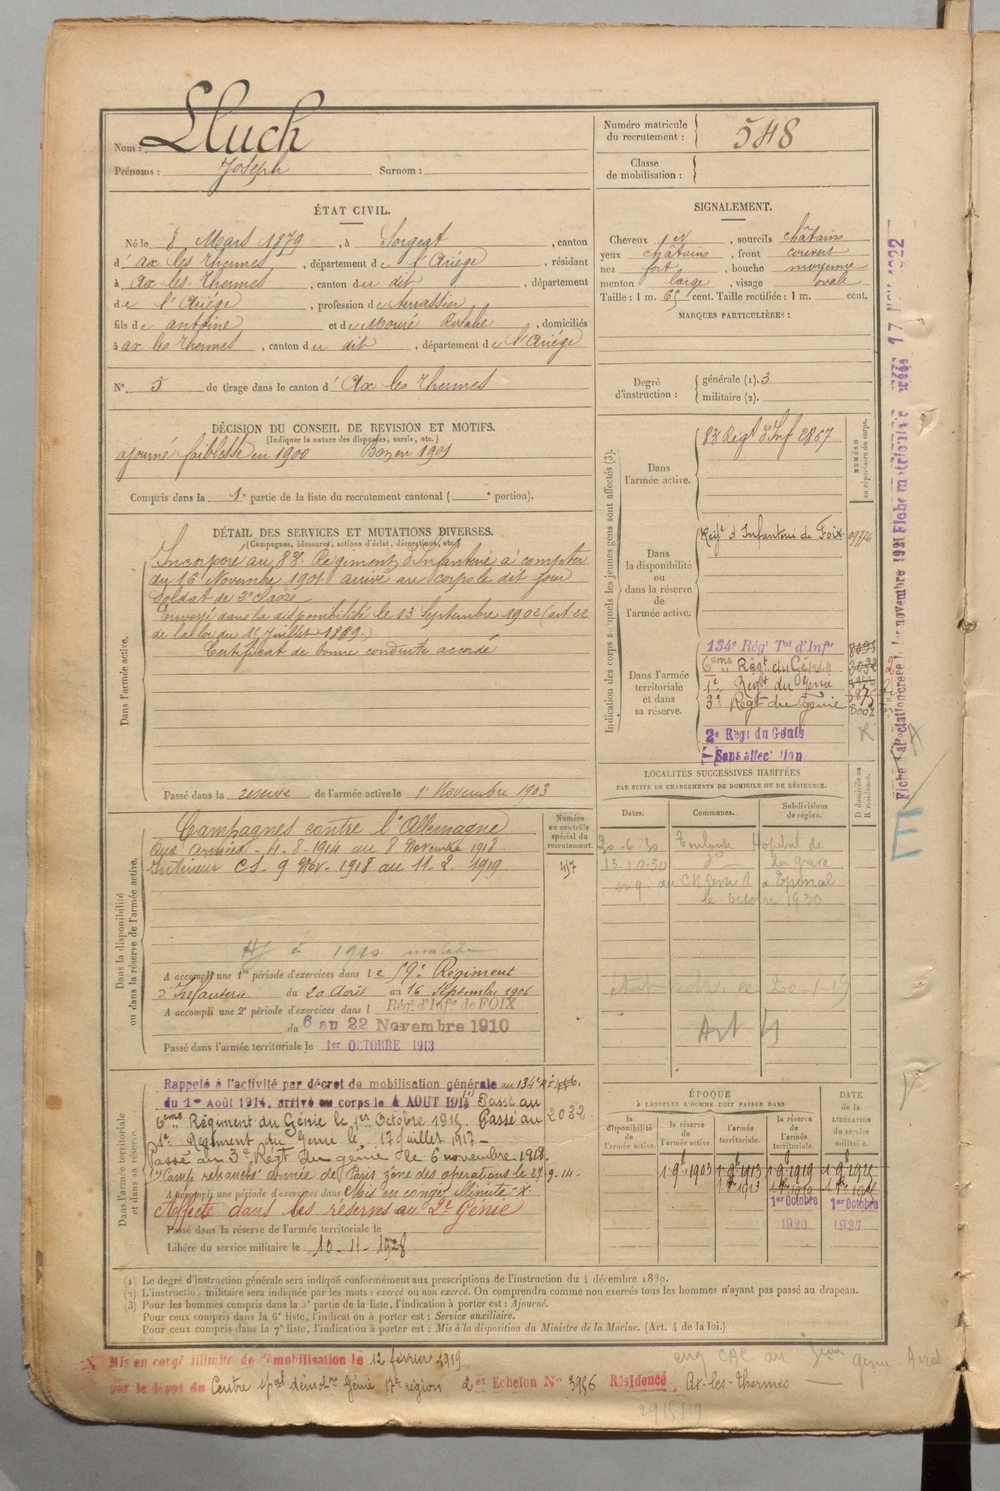 Nom : Lluch
Prénoms : Joseph Surnom :
Numéro matricule du recrutement : 548
Classe de mobilisation :
ÉTAT CIVIL.
Né le 8 Mars 1879, à Sorgeat, canton
d' Ax les Thermes, département de l'Ariège, résidant
à Ax les Thermes, canton du dit, département
de l'Ariége, profession de terrassier
fils de Antoine et de Mouré Rosalie, domiciliés
à ax les Thermes, canton du dit, département de l'Ariége
N° 5 de tirage dans le canton d' Ax les Thermes
SIGNALEMENT.
Cheveux , sourcils châtains
yeux châtains, front couvert
nez fort, bouche moyenne
menton large, visage ovale
Taille : 1 m. 65 cent. Taille rectifiée : 1 m. cent.
MARQUES PARTICULIÈRES :
Degré d'instruction :
générale (1). 3
militaire (2).
DÉCISION DU CONSEIL DE REVISION ET MOTIFS.
(Indiquer la nature des dispenses, sursis, etc.)
ajourné faiblesse en 1900 Bon en 1901
Compris dans la 1e partie de la liste du recrutement cantonal ( e portion).
DÉTAIL DES SERVICES ET MUTATIONS DIVERSES.
(Campagnes, blessures, actions d'éclat, décorations, etc.)
Dans l'armée active.
Incorporé au 83e Régiment d'Infanterie à compter
du 16 Novembre 1901 arrivé au corps le dit jour
Soldat de 2e classe
Envoyé dans la disponibilité le 13 Septembre 1902 (art 22
de la loi du 15 Juillet 1889.)
Certificat de bonne conduite accordé
Passé dans la réserve de l'armée active le 1 Novembre 1903
Indication des corps auxquels les jeunes gens sont affectés (3).
NUMÉRO au répertoire du corps.
Dans l'armée active.
83 Régt d'Inf 2867
Dans la disponibilité ou dans la réserve de l'armée active.
Régt d'Infanterie de Foix
Dans l'armée territoriale et dans sa réserve.
134e Régt Tal d'Infie
6eme Régt du Génie
1e Régt du Génie
3e Régt du Génie
2e Régt du Génie
Sans affectation
LOCALITÉS SUCCESSIVES HABITÉES
PAR SUITE DE CHANGEMENTS DE DOMICILE OU DE RÉSIDENCE.
Dates. Communes. Subdivisions de région. D domicile ou R résidence.
20-6-30 Toulouse Hopital de
13-10-30 la grave
Epinal
1930
Art 4
Dans la disponibilité ou dans la réserve de l'armée active.
Numéro au contrôle spécial du recrutement.
Campagnes contre l'Allemagne
Aux armées - 4-8-1914 au 8 Novembre 1918
Intérieur CS. 9 Nov. 1918 au 11. 2. 1919
457
1910 malade
A accompli une 1re période d'exercices dans le 59e Régiment
d'Infanterie du 20 Août au 16 Septembre 1906
A accompli une 2e période d'exercices dans l Régt d'Infie de FOIX
du 6 au 22 Novembre 1910
Passé dans l'armée territoriale le 1er OCTOBRE 1913
Dans l'armée territoriale et dans sa réserve.
Rappelé à l'activité par décret de mobilisation générale au 134e
du 1er Août 1914, arrivé au corps le 4 AOUT 1914 Passé au
6eme Régiment du Génie le 1er Octobre 1915 Passé au 2032
1e Régiment du Génie le 17 Juillet 1917 -
Passé au 3e Régt du génie le 6 novembre 1918
Camp retranché armée de Paris zône des opérations le 27-9-14
A accompli une période d'exercices dans Mis en congé illimité X
Affecté dans les réserves au 2e Génie
Passé dans la réserve de l'armée territoriale le
Libéré du service militaire le 10-11-1928
ÉPOQUE
À LAQUELLE L'HOMME DOIT PASSER DANS
la disponibilité de l'armée active.
la réserve de l'armée active.
l'armée territoriale.
la réserve de l'armée territoriale.
DATE de la LIBÉRATION du service militaire.
1903 1913 1919
1er Octobre 1er Octobre
1920 1927
(1) Le degré d'instruction générale sera indiqué conformément aux prescriptions de l'instruction du 4 décembre 1889.
(2) L'instruction militaire sera indiquée par les mots : exercé ou non exercé. On comprendra comme non exercés tous les hommes n'ayant pas passé au drapeau.
(3) Pour les hommes compris dans la 5e partie de la liste, l'indication à porter est : Ajourné.
Pour ceux compris dans la 6e liste, l'indication à porter est : Service auxiliaire.
Pour ceux compris dans la 7e liste, l'indication à porter est : Mis à la disposition du Ministre de la Marine. (Art. 4 de la loi.)
X Mis en congé illimité de démobilisation le 12 février 1919
par le dépôt du Centre spal démobon Génie 17e région 2e Echelon No 3956 Résidence Ax-les-Thermes
29/5/19